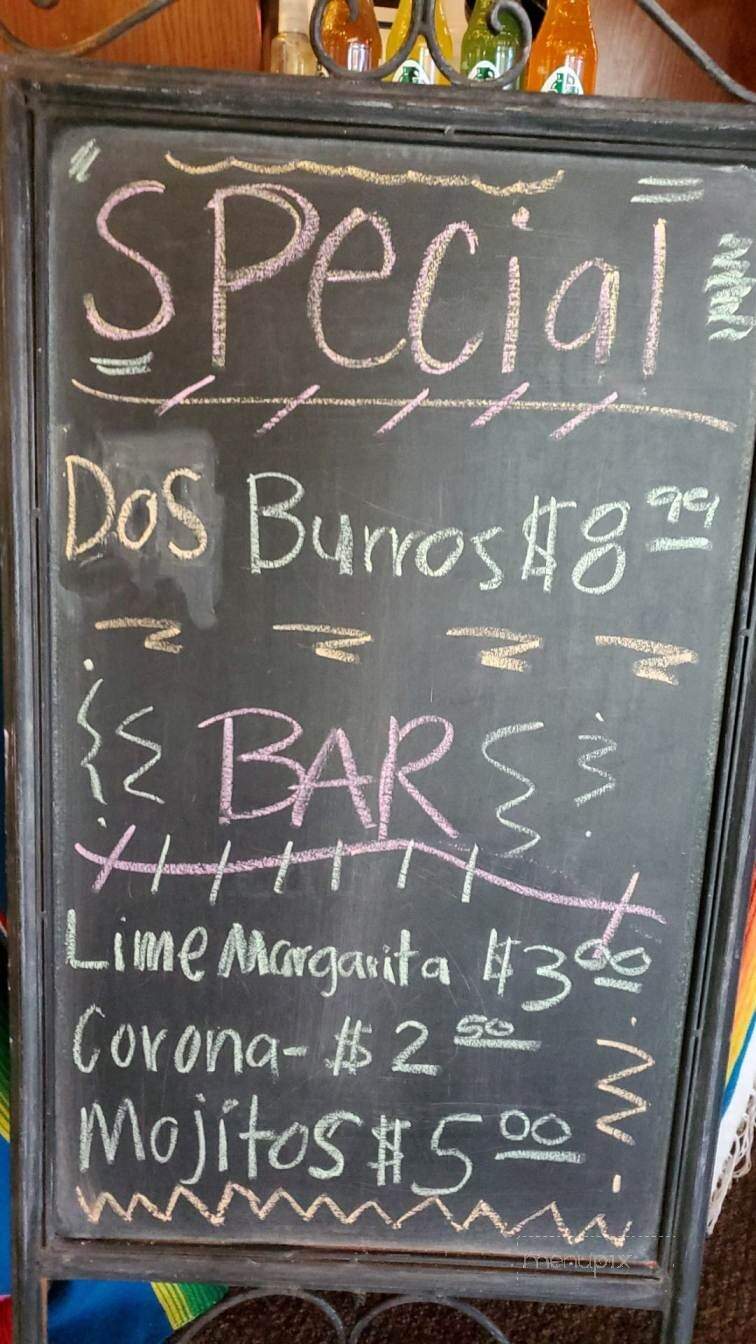 SPecial
DoS Burros $8.99
BAR
Lime Margarita $3.00
Corona- $2.50
Mojitos $5.00
menupix